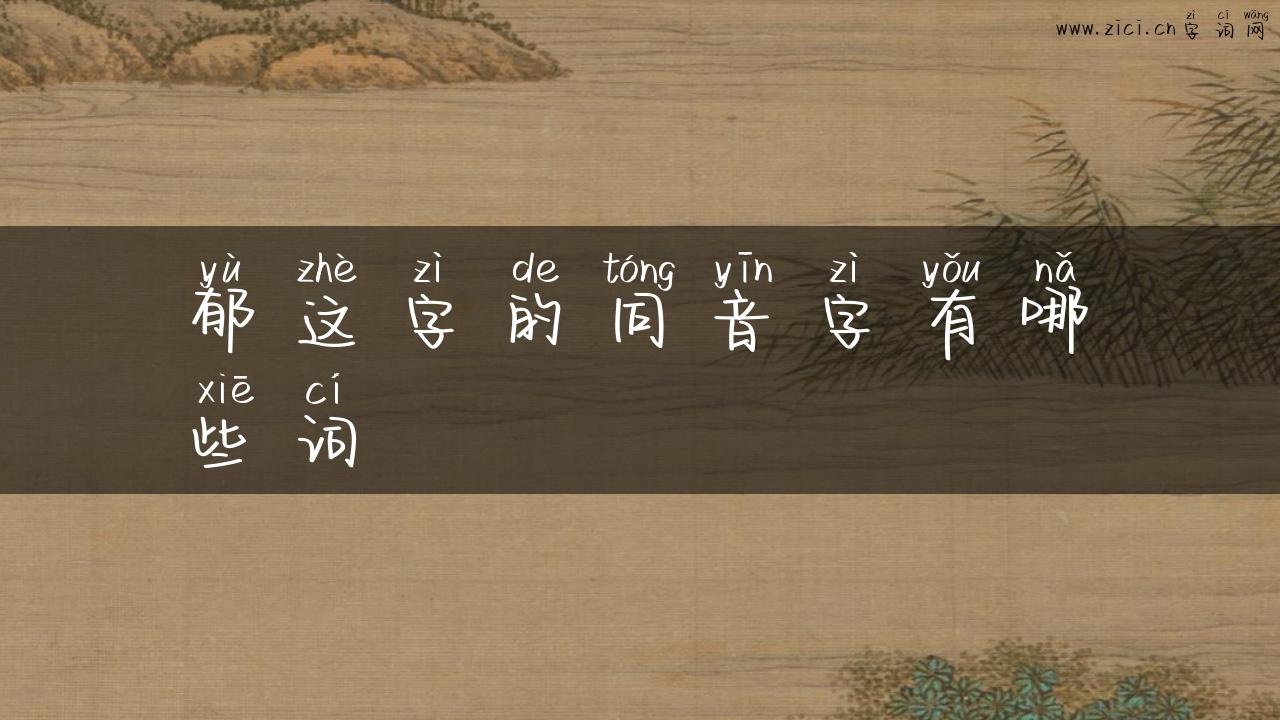 zì cí wǎng
www.zici.cn 字词网
yù zhè zì de tóng yīn zì yǒu nǎ
郁这字的同音字有哪
xiē cí
些词